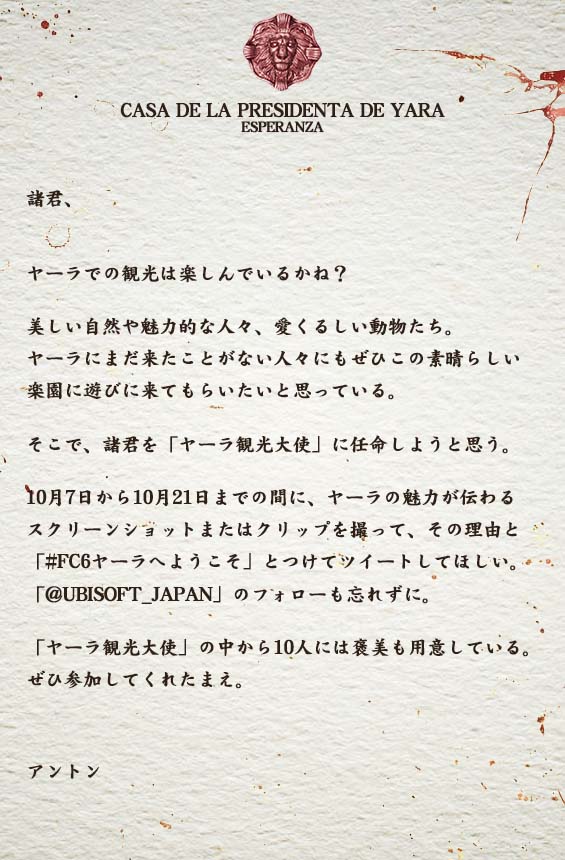 CASA DE LA PRESIDENTA DE YARA
ESPERANZA
諸君、
ヤーラでの観光は楽しんでいるかね？
美しい自然や魅力的な人々、愛くるしい動物たち。
ヤーラにまだ来たことがない人々にもぜひこの素晴らしい
楽園に遊びに来てもらいたいと思っている。
そこで、諸君を「ヤーラ観光大使」に任命しようと思う。
10月7日から10月21日までの間に、ヤーラの魅力が伝わる
スクリーンショットまたはクリップを撮って、その理由と
「#FC6ヤーラへようこそ」とつけてツイートしてほしい。
「@UBISOFT_JAPAN」のフォローも忘れずに。
「ヤーラ観光大使」の中から10人には褒美も用意している。
ぜひ参加してくれたまえ。
アントン